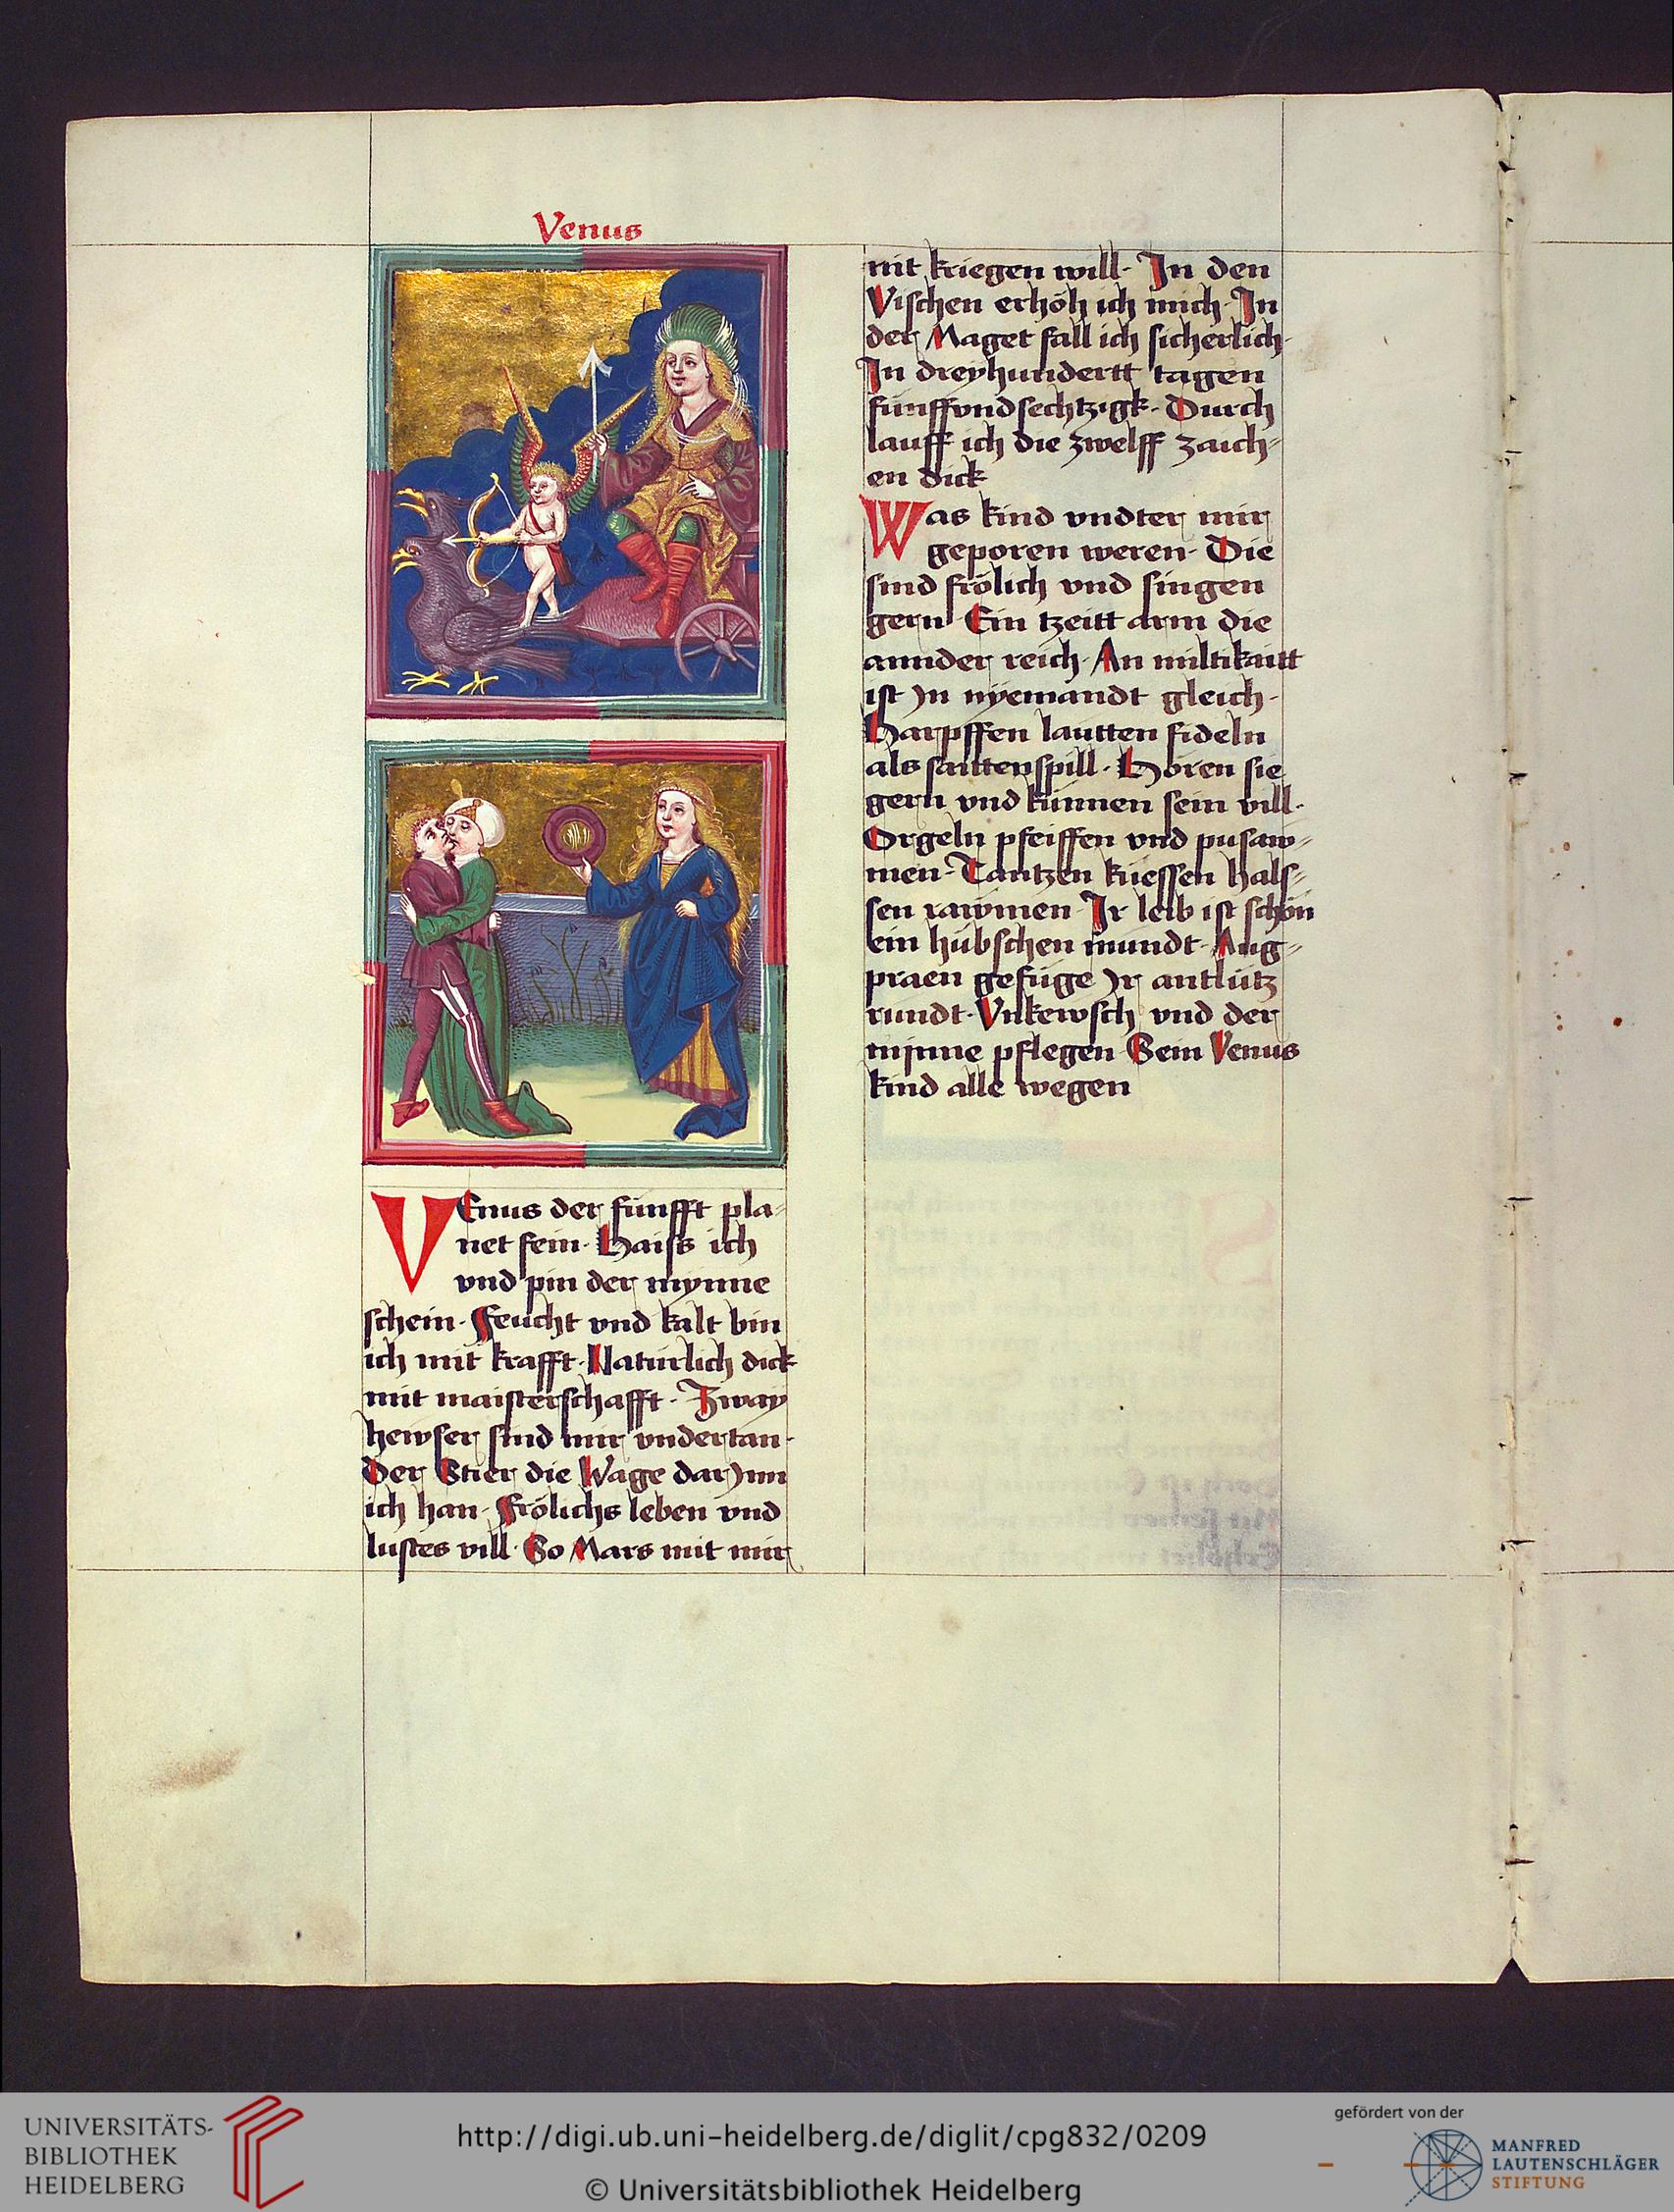 Venus
VEnus der fünfft pla-
net fein. Haiss ich
vnd pin der mynne
schein. Feucht vnd kalt bin
ich mit krafft. Natürlich dick
mit maisterschafft. Zway
hewser sind mir vndertan.
Der Stier die Wage darjnn
ich han. Frölichs leben vnd
lustes vill. So Mars mit mir
nit kriegen will. In den
Vischen erhöh ich mich. In
der Maget fall ich sicherlich.
In dreyhundertt tagen
fünffvndsechtzigk. Durch
lauff ich die zwelff zaich-
en dick
Was kind vndter mir
geporen weren. Die
sind frölich vnd singen
gern. Ein tzeitt arm die
annder reich. An miltikaitt
ist jn nyemandt gleich.
Harpffen lautten fideln
als saittenspill. Hören sie
gern vnd künnen sein vill.
Orgeln pfeiffen vnd pusaw-
men. Tantzen küessen hals-
sen rawmen. Ir leib ist schön
ein hübschen mundt. Aug-
praen gefüge jr antlütz
rundt. Vnkewsch vnd der
mynne pflegen. Sein Venus
kind alle wegen
UNIVERSITÄTS-
BIBLIOTHEK
HEIDELBERG
http://digi.ub.uni-heidelberg.de/diglit/cpg832/0209
© Universitätsbibliothek Heidelberg
gefördert von der
MANFRED
LAUTENSCHLÄGER
STIFTUNG